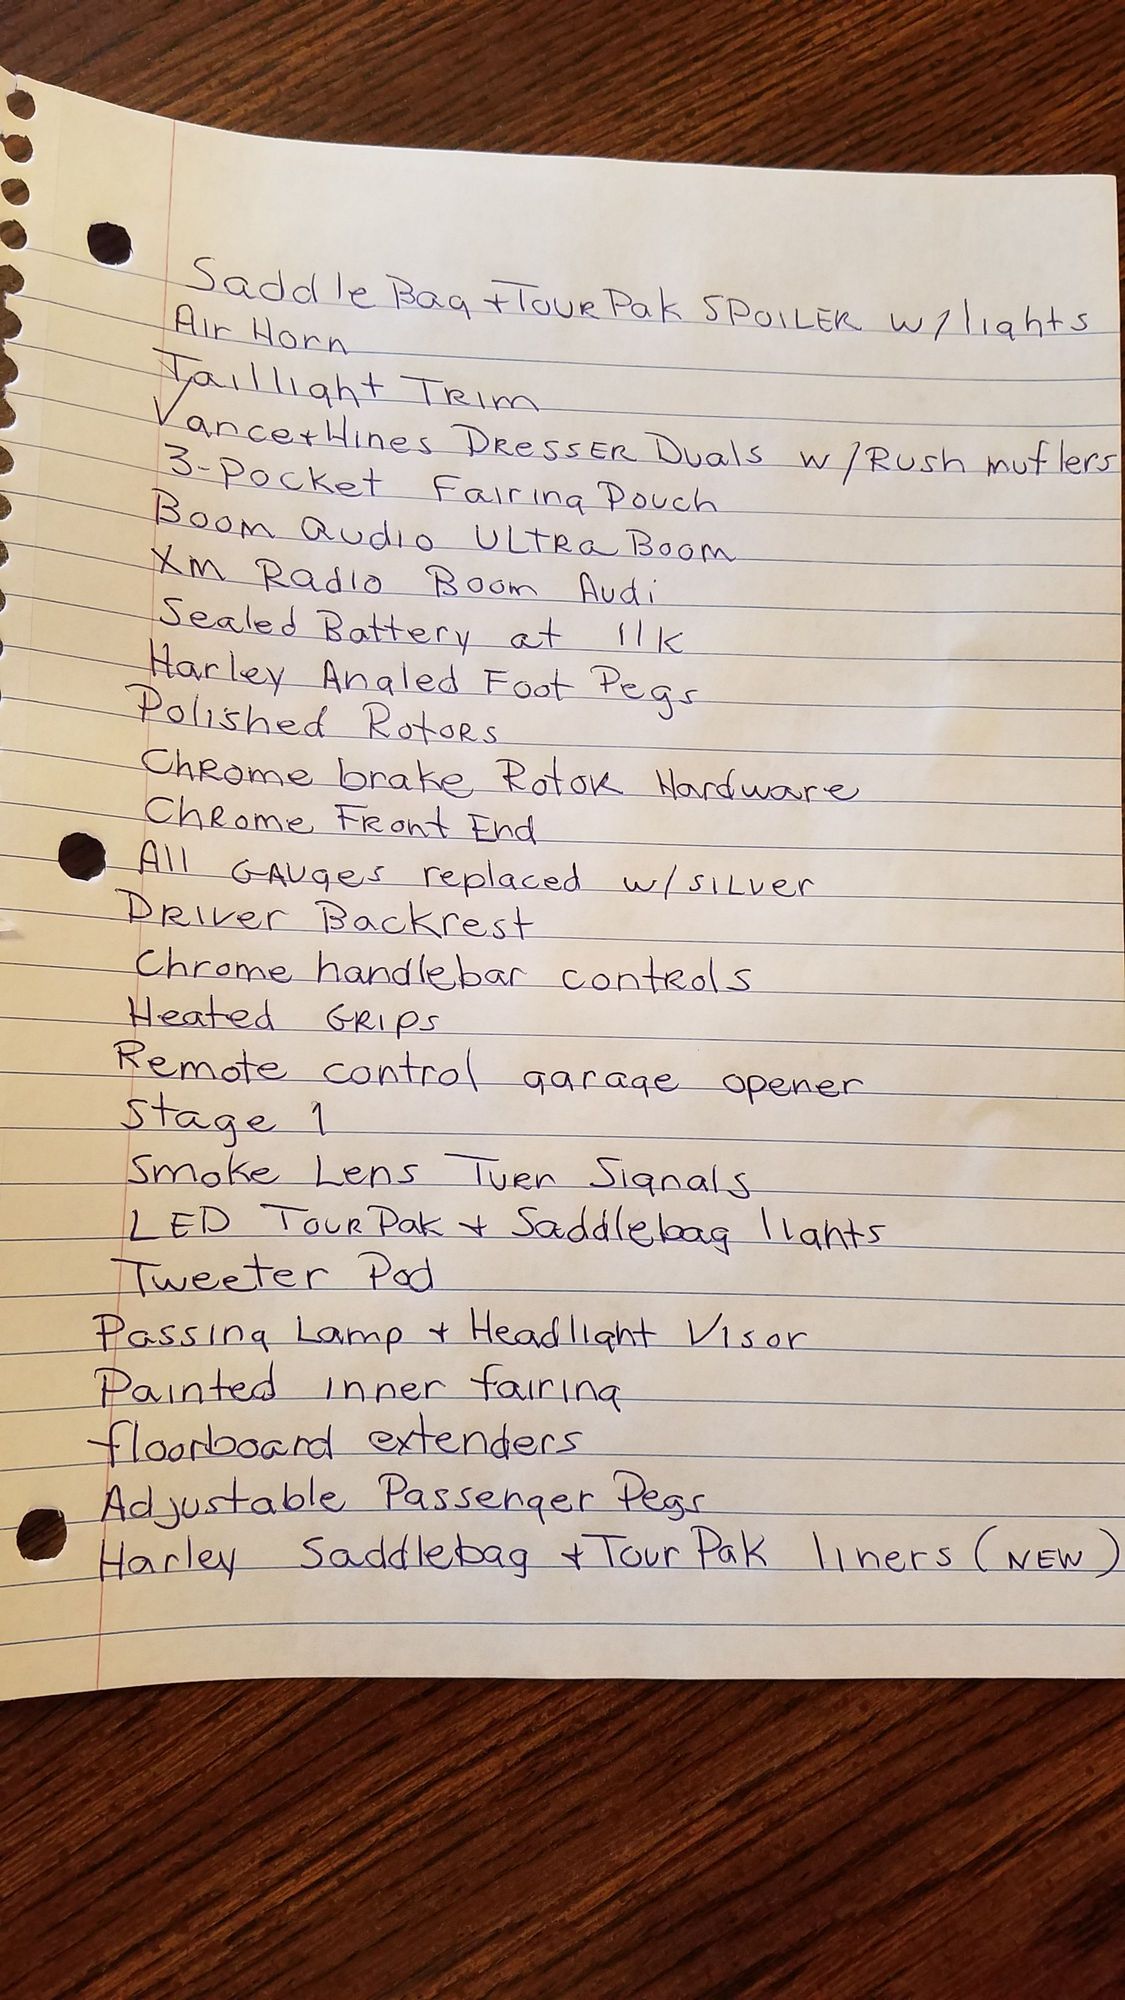 Saddle Bag + Tour Pak SPOILER w/lights
Air Horn
Taillight Trim
Vance + Hines Dresser Duals w/Rush muflers
3-Pocket Fairing Pouch
Boom Audio Ultra Boom
Xm Radio Boom Audi
Sealed Battery at 11K
Harley Angled Foot Pegs
Polished Rotors
Chrome brake Rotor Hardware
Chrome Front End
All GAUges replaced w/SILVER
Driver Backrest
Chrome handlebar controls
Heated Grips
Remote control garage opener
Stage 1
Smoke Lens Tuen Signals
LED Tour Pak + Saddlebag lights
Tweeter Pod
Passing Lamp + Headlight Visor
Painted inner fairing
floorboard extenders
Adjustable Passenger Pegs
Harley Saddlebag + Tour Pak liners (NEW)